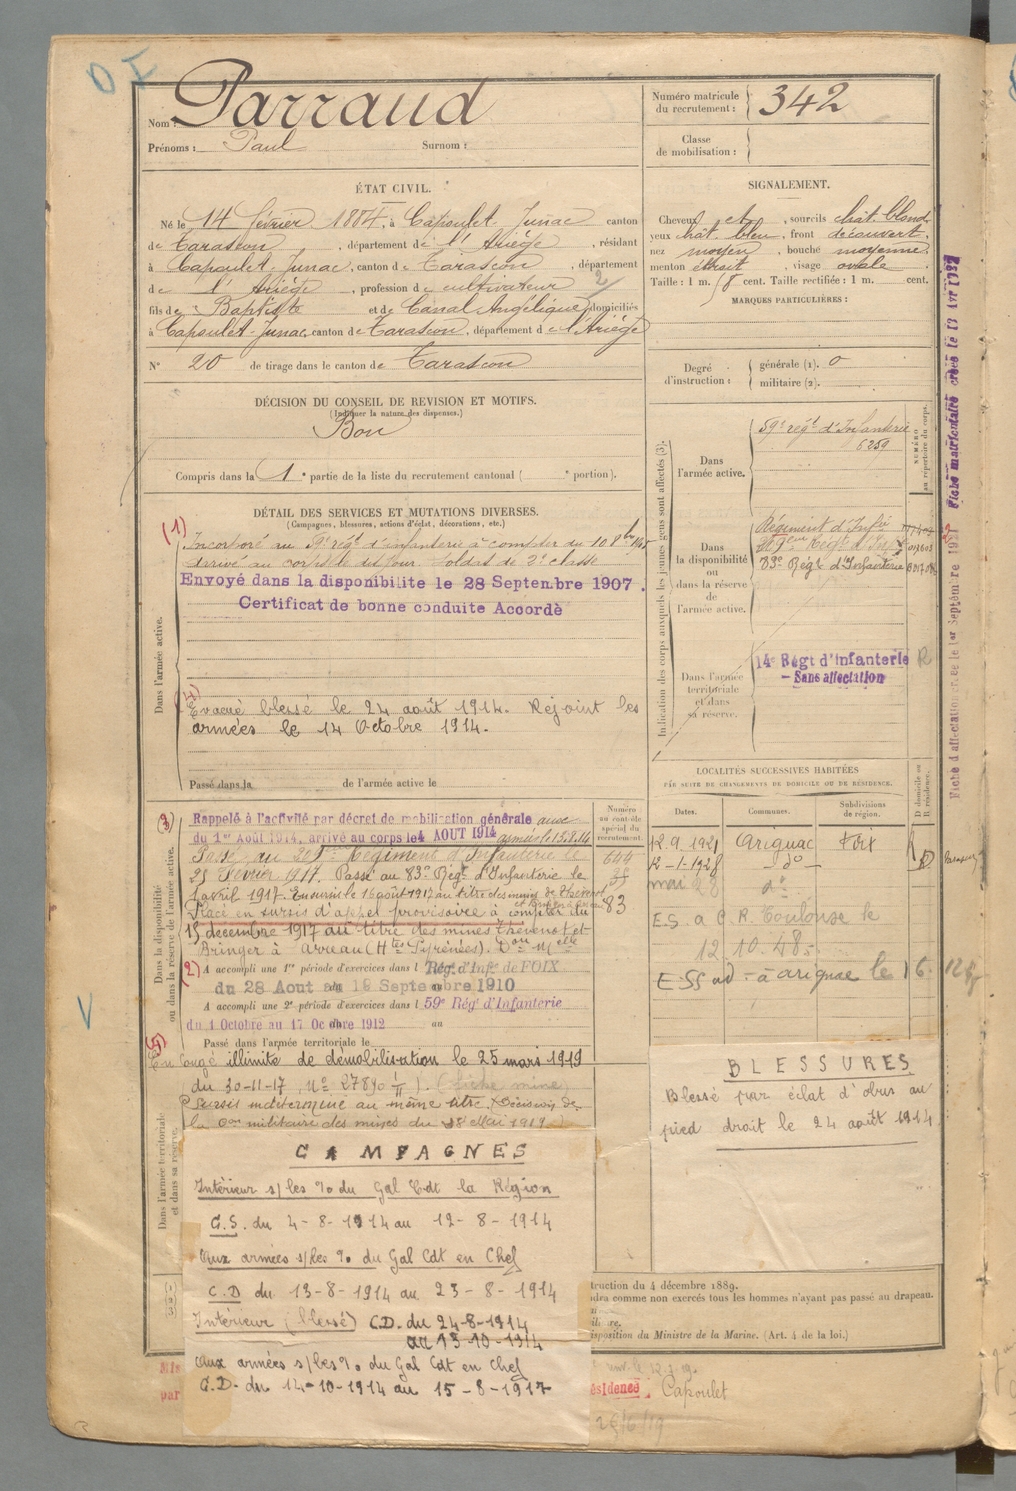 Nom : Parraud
Prénoms : Paul Surnom :
Numéro matricule du recrutement : 342
Classe de mobilisation :
ÉTAT CIVIL.
Né le 14 février 1884, à Capoulet-Junac canton
de Tarascon, département de l'Ariège, résidant
à Capoulet-Junac, canton de Tarascon, département
de l'Ariège, profession de cultivateur
fils de Baptiste et de Canal Angélique domiciliés
à Capoulet-Junac, canton de Tarascon, département de l'Ariège
N° 20 de tirage dans le canton de Tarascon
SIGNALEMENT.
Cheveux et, sourcils chât. blond,
yeux chât. bleu, front découvert,
nez moyen, bouche moyenne,
menton étroit, visage ovale
Taille : 1 m. 58 cent. Taille rectifiée : 1 m. cent.
MARQUES PARTICULIÈRES :
Degré d'instruction : générale (1). 0
militaire (2).
DÉCISION DU CONSEIL DE REVISION ET MOTIFS.
(Indiquer la nature des dispenses.)
Bon
Compris dans la 1e partie de la liste du recrutement cantonal ( e portion).
DÉTAIL DES SERVICES ET MUTATIONS DIVERSES.
(Campagnes, blessures, actions d'éclat, décorations, etc.)
Dans l'armée active.
(1)
Incorporé au 59e régt d'infanterie à compter du 10 8bre
Arrivé au corps le dit jour soldat de 2e classe
Envoyé dans la disponibilité le 28 Septembre 1907.
Certificat de bonne conduite Accordé
(4)
Evacué blessé le 24 août 1914. Rejoint les
armées le 14 Octobre 1914.
Passé dans la de l'armée active le
Indication des corps auxquels les jeunes gens sont affectés (3).
NUMÉRO au répertoire du corps.
Dans l'armée active.
59e régt d'Infanterie
6259
Dans la disponibilité ou dans la réserve de l'armée active.
Régiment d'Infie
83e Régt d'Infanterie
Dans l'armée territoriale et dans sa réserve.
14e Régt d'infanterie R
- Sans affectation
Fiche matriculaire créée le 13 Avr 1932
LOCALITÉS SUCCESSIVES HABITÉES
PAR SUITE DE CHANGEMENTS DE DOMICILE OU DE RÉSIDENCE.
Dates. Communes. Subdivisions de région. D domicile ou R résidence.
12.9.1921 Arignac Foix R
12-1-1928 -do- D
mai 28 do
E.S. a C.R. Toulouse le
12.10.48.
Dans la disponibilité ou dans la réserve de l'armée active.
Numéro au contrôle spécial du recrutement.
(3)
Rappelé à l'activité par décret de mobilisation générale aux
du 1er Août 1914, arrivé au corps le 4 AOUT 1914 armées le 13.8.14
Passé au Régiment d'Infanterie le
25 Février 1917. Passé au 83e Régt d'Infanterie le
1 avril 1917. En sursis le 16 août 1917 au titre des mines de Thévenot
Placé en sursis d'appel provisoire à compter du 83
15 décembre 1917 au titre des mines Thévenot et
Bringer à Arreau (Htes Pyrénées).
(2)
A accompli une 1re période d'exercices dans l Régt d'Infie de FOIX
du 28 Aout au 19 Septembre 1910
A accompli une 2e période d'exercices dans l 59e Régt d'Infanterie
du 1 Octobre au 17 Octobre 1912 au
Passé dans l'armée territoriale le
(5)
En congé illimité de démobilisation le 25 mars 1919
du 30-11-17, No 27890 1/11). (Fiche mine)
Sursis indéterminé au même titre. (Décision de
militaire des mines du 18 Mai 1919)
Dans l'armée territoriale et dans sa réserve.
BLESSURES
Blessé par éclat d'obus au
pied droit le 24 août 1914
CAMPAGNES
Intérieur s/les % du Gal Cdt la Région
C.S. du 4-8-1914 au 12-8-1914
Aux armées s/les % du Gal Cdt en Chef
C.D du 13-8-1914 au 23-8-1914
Intérieur (blessé) C.D. du 24-8-1914
au 13-10-1914
Aux armées s/les % du Gal Cdt en Chef
C.D. du 14-10-1914 au 15-8-1917
truction du 4 décembre 1889.
dra comme non exercés tous les hommes n'ayant pas passé au drapeau.
isposition du Ministre de la Marine. (Art. 4 de la loi.)
ésidence Capoulet
26/6/19